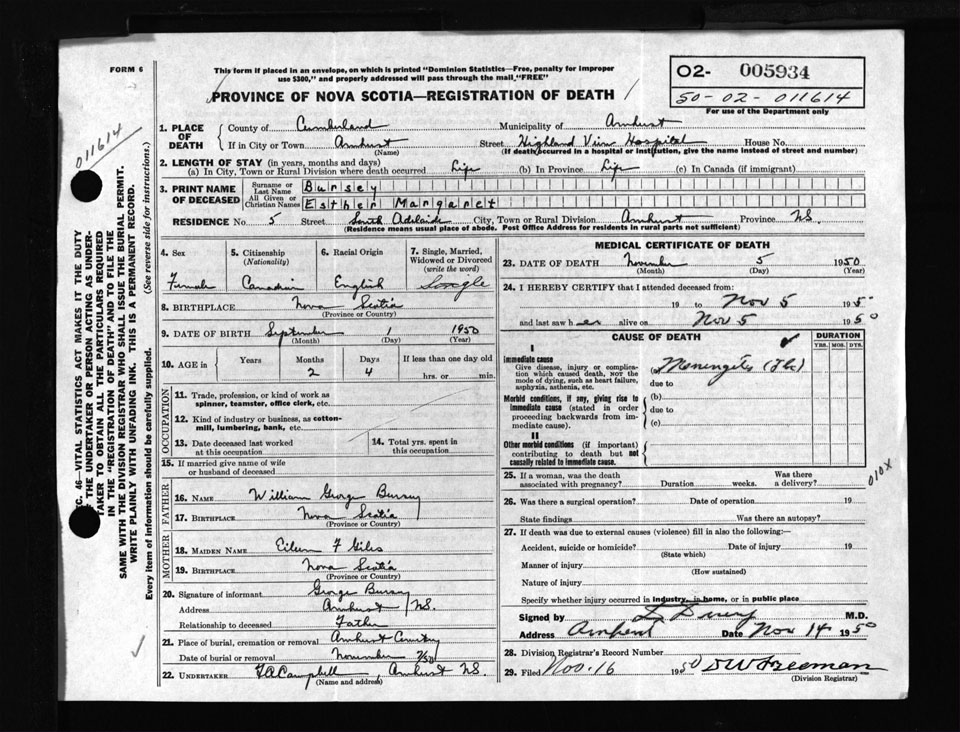 FORM 6
This form if placed in an envelope, on which is printed "Dominion Statistics—Free, penalty for improper
use $300," and properly addressed will pass through the mail "FREE"
O2- 005934
50-02-011614
For use of the Department only
PROVINCE OF NOVA SCOTIA—REGISTRATION OF DEATH
011614
SEC. 46—VITAL STATISTICS ACT MAKES IT THE DUTY
OF THE UNDERTAKER OR PERSON ACTING AS UNDER-
TAKER TO OBTAIN ALL THE PARTICULARS REQUIRED
IN THE "REGISTRATION OF DEATH" AND TO FILE THE
SAME WITH THE DIVISION REGISTRAR WHO SHALL ISSUE THE BURIAL PERMIT.
WRITE PLAINLY WITH UNFADING INK. THIS IS A PERMANENT RECORD.
Every item of information should be carefully supplied. (See reverse side for instructions.)
1. PLACE OF DEATH
County of Cumberland Municipality of Amherst
If in City or Town Amherst (Name) Street Highland View Hospital House No.
(If death occurred in a hospital or institution, give the name instead of street and number)
2. LENGTH OF STAY (in years, months and days)
(a) In City, Town or Rural Division where death occurred Life (b) In Province Life (c) In Canada (if immigrant)
3. PRINT NAME OF DECEASED
Surname or Last Name Bursey
All Given or Christian Names Esther Margaret
RESIDENCE No. 5 Street South Adelaide City, Town or Rural Division Amherst Province N.S.
(Residence means usual place of abode. Post Office Address for residents in rural parts not sufficient)
4. Sex Female
5. Citizenship (Nationality) Canadian
6. Racial Origin English
7. Single, Married, Widowed or Divorced (write the word) Single
8. BIRTHPLACE Nova Scotia
(Province or Country)
9. DATE OF BIRTH September 1 1950
(Month) (Day) (Year)
10. AGE in Years Months 2 Days 4 If less than one day old hrs. or min.
OCCUPATION
11. Trade, profession, or kind of work as
spinner, teamster, office clerk, etc.
12. Kind of industry or business, as cotton-
mill, lumbering, bank, etc.
13. Date deceased last worked at this occupation
14. Total yrs. spent in this occupation
15. If married give name of wife
or husband of deceased
FATHER
16. NAME William George Bursey
17. BIRTHPLACE Nova Scotia
(Province or Country)
MOTHER
18. MAIDEN NAME Eileen F Giles
19. BIRTHPLACE Nova Scotia
(Province or Country)
20. Signature of informant George Bursey
Address Amherst, N.S.
Relationship to deceased Father
21. Place of burial, cremation or removal Amherst Cemetery
Date of burial or removal November 7/50
22. UNDERTAKER F.A. Campbell, Amherst N.S.
(Name and address)
MEDICAL CERTIFICATE OF DEATH
23. DATE OF DEATH November 5 1950
(Month) (Day) (Year)
24. I HEREBY CERTIFY that I attended deceased from:
19 to Nov 5 195
and last saw her alive on Nov 5 1950
CAUSE OF DEATH
DURATION
YRS. MOS. DYS.
I
Immediate cause
Give disease, injury or complica-
tion which caused death, NOT the
mode of dying, such as heart failure,
asphyxia, asthenia, etc.
(a) Meningitis (Tbc)
due to
Morbid conditions, if any, giving rise to
immediate cause (stated in order
proceeding backwards from im-
mediate cause).
(b)
due to
(c)
II
Other morbid conditions (if important)
contributing to death but not
causally related to immediate cause.
010X
25. If a woman, was the death
associated with pregnancy? Duration weeks. Was there a delivery?
26. Was there a surgical operation? Date of operation 19
State findings Was there an autopsy?
27. If death was due to external causes (violence) fill in also the following:—
Accident, suicide or homicide? (State which) Date of injury 19
Manner of injury (How sustained)
Nature of injury
Specify whether injury occurred in industry, in home, or in public place
Signed by M.D.
Address Amherst Date Nov 14 1950
28. Division Registrar's Record Number
29. Filed Nov. 16 1950 D W Freeman
(Division Registrar)